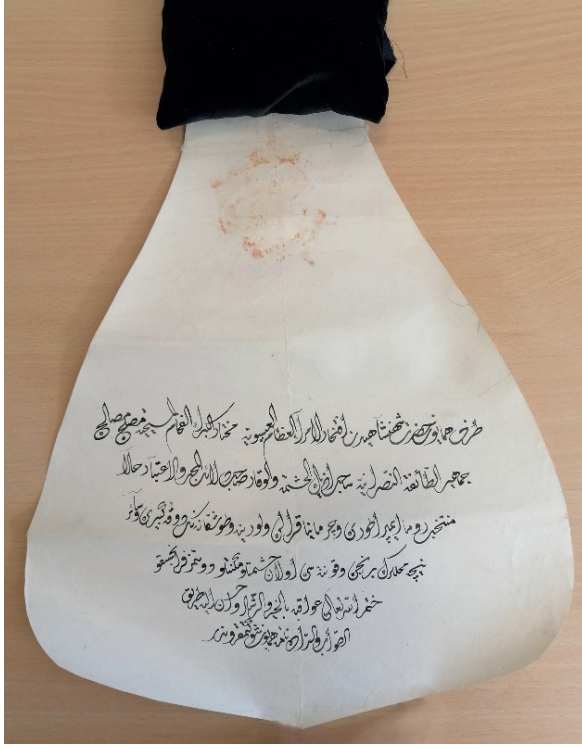 طرف همايون حضرت شهنشاهيدن افتخار الامراء العظام العيسويه مختار الكبراء الفخام المسيحيه مصلح مصالح
جماهير الطائفة النصرانيه ساحب اذيال الحشمة والوقار صاحب دلائل المجد والاعتبار حالا
منتخب روما ايمپراطورى وجرمانيا قرالى ولورينه وطوشقانه نك دوقه كبيرى وسائر
نيچه محللرك پرنچى اولان حشمتلو مكنتلو دوستمز فرانچسقو
ختم الله تعالى عواقبه بالخير والرشاد اليه طريق
الصواب والسداد نامهٔ همايون شوكتمقرونيدر